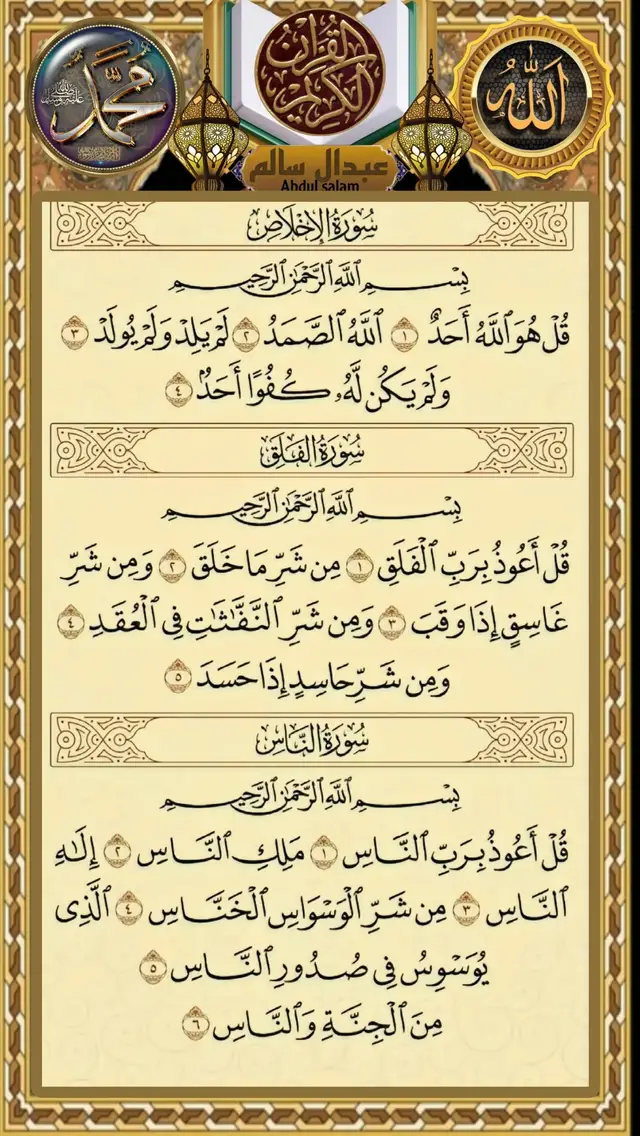 القرآن الكريم
الله
محمد
عبدال سالم
Abdul salam
سُورَةُ الإِخْلَاصِ
بِسْمِ ٱللَّهِ ٱلرَّحْمَٰنِ ٱلرَّحِيمِ
قُلْ هُوَ ٱللَّهُ أَحَدٌ ١ ٱللَّهُ ٱلصَّمَدُ ٢ لَمْ يَلِدْ وَلَمْ يُولَدْ ٣
وَلَمْ يَكُن لَّهُۥ كُفُوًا أَحَدٌۢ ٤
سُورَةُ الفَلَقِ
بِسْمِ ٱللَّهِ ٱلرَّحْمَٰنِ ٱلرَّحِيمِ
قُلْ أَعُوذُ بِرَبِّ ٱلْفَلَقِ ١ مِن شَرِّ مَا خَلَقَ ٢ وَمِن شَرِّ
غَاسِقٍ إِذَا وَقَبَ ٣ وَمِن شَرِّ ٱلنَّفَّٰثَٰتِ فِى ٱلْعُقَدِ ٤
وَمِن شَرِّ حَاسِدٍ إِذَا حَسَدَ ٥
سُورَةُ النَّاسِ
بِسْمِ ٱللَّهِ ٱلرَّحْمَٰنِ ٱلرَّحِيمِ
قُلْ أَعُوذُ بِرَبِّ ٱلنَّاسِ ١ مَلِكِ ٱلنَّاسِ ٢ إِلَٰهِ
ٱلنَّاسِ ٣ مِن شَرِّ ٱلْوَسْوَاسِ ٱلْخَنَّاسِ ٤ ٱلَّذِى
يُوَسْوِسُ فِى صُدُورِ ٱلنَّاسِ ٥
مِنَ ٱلْجِنَّةِ وَٱلنَّاسِ ٦